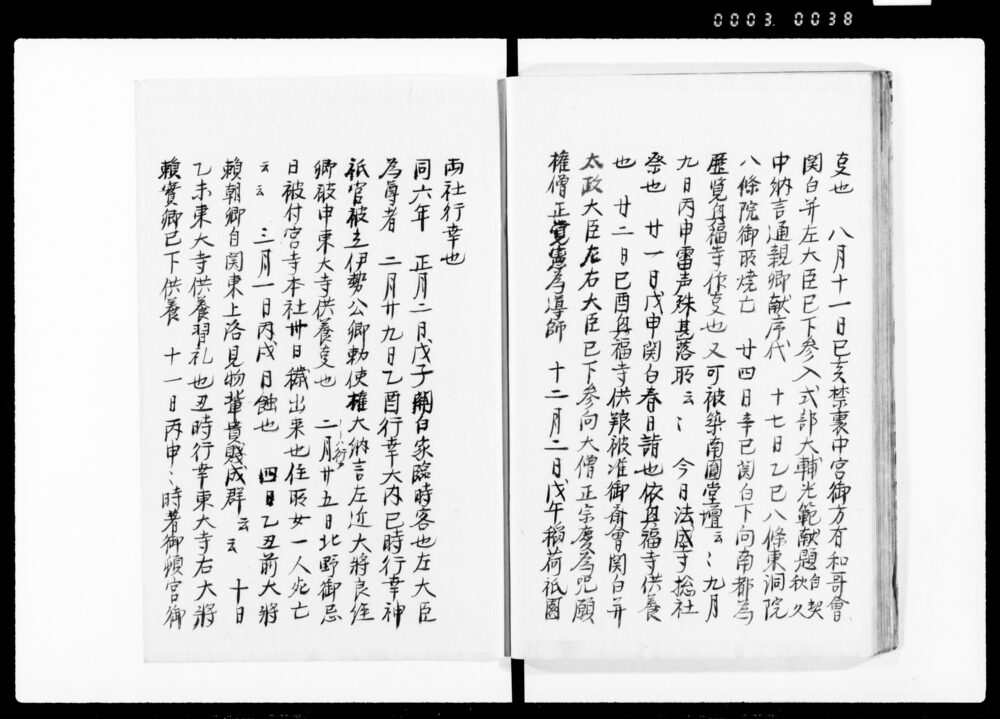 0003.0038
叓也　八月十一日己亥禁裏中宮御方有和哥會
関白并左大臣已下参入式部大輔光範献題秋久契自
中納言通親卿献序代　十七日乙巳八條東洞院
八條院御所焼亡　廿四日辛巳関白下向南都為
歴覧興福寺作叓也又可被築南圓堂壇云〻九月
九日丙申雷声殊甚落所云〻　今月法成寺惣社
祭也　廿一日戊申関白春日詣也依興福寺供養
也　廿二日己酉興福寺供養被准御齋會関白并
太政大臣左右大臣已下参向大僧正宗慶為咒願
権僧正覚憲為導師　十二月二日戊午稲荷祇園
両社行幸也
同六年　正月二日戊子関白家臨時客也左大臣
為尊者　二月廿九日乙酉行幸大内已時行幸神
祇官被立伊勢公卿勅使権大納言左近大将良経
卿被申東大寺供養叓也　二月廿五日北野御忌
日被付宮寺本社廿日穢出来也住所女一人死亡
云云　三月一日丙戌日蝕也　四日乙丑前大将
頼朝卿自関東上洛見物輩貴賤成群云云　十日
乙未東大寺供養習礼也丑時行幸東大寺右大将
頼實卿已下供養　十一日丙申〻時著御頓宮御